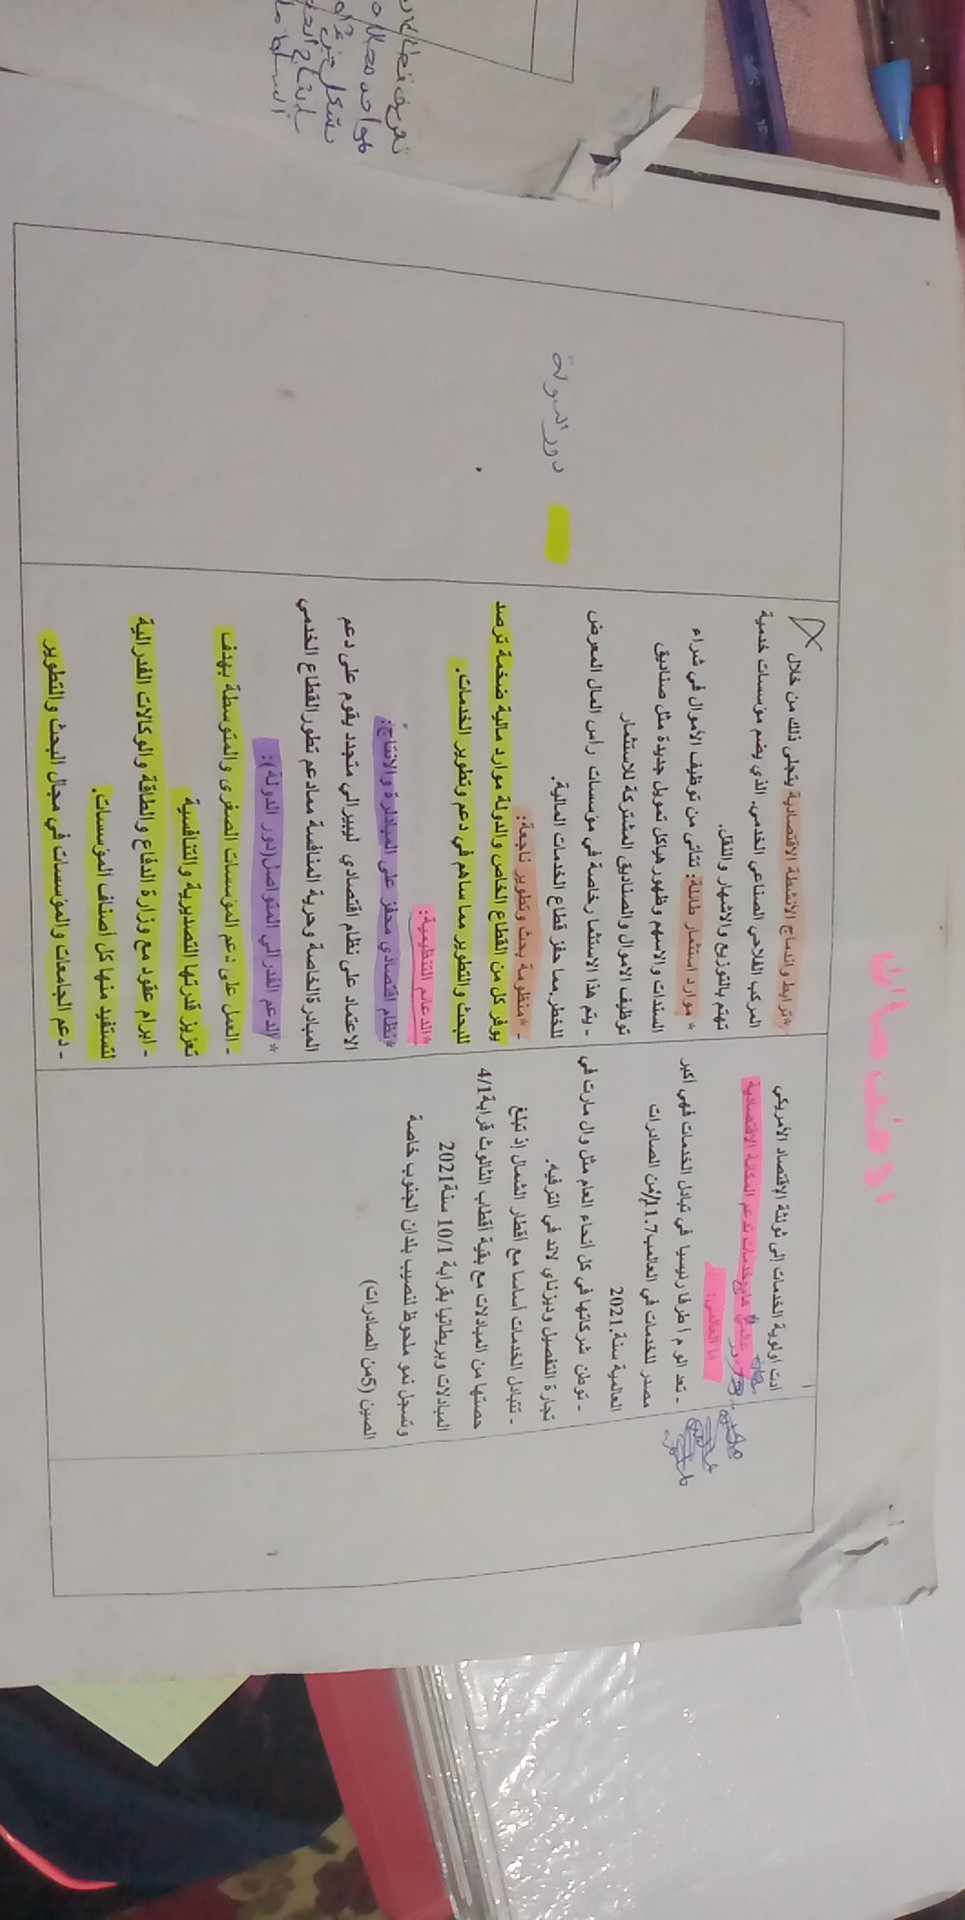 الاختصاصات
*ترابط واندماج الأنشطة الاقتصادية يتجلى ذلك من خلال
المركب الفلاحي الصناعي الخدمي، الذي يضم مؤسسات خدمية
تهتم بالتوزيع والاشهار والنقل.
* موارد استثمار طائلة: تتأتى من توظيف الأموال في شراء
السندات والاسهم وظهور هياكل تمويل جديدة مثل صناديق
توظيف الاموال والصناديق المشتركة للاستثمار
- يتم هذا الاستثمار خاصة في مؤسسات رأس المال المعرض
للخطر، مما حفز قطاع الخدمات المالية.
- *منظومة بحث وتطوير ناجعة:
يوفر كل من القطاع الخاص والدولة موارد مالية ضخمة ترصد
للبحث والتطوير مما ساهم في دعم وتطوير الخدمات.
*الدعائم التنظيمية:
*نظام اقتصادي محفز على المبادرة والانتاج:
الاعتماد على نظام اقتصادي ليبيرالي متجدد يقوم على دعم
المبادرة الخاصة وحرية المنافسة مما دعم تطور القطاع الخدمي
* الدعم الفدرالي المتواصل(دور الدولة):
- العمل على دعم المؤسسات الصغرى والمتوسطة بهدف
تعزيز قدرتها التصديرية والتنافسية
- ابرام عقود مع وزارة الدفاع والطاقة والوكالات الفدرالية
لتستفيد منها كل أصناف المؤسسات.
- دعم الجامعات والمؤسسات في مجال البحث والتطوير
دور الدولة
أدت أولوية الخدمات الى ثولثة الاقتصاد الأمريكي
خدمات تدعم المكانة الاقتصادية
العالمي:
- تعد الو م ا طرفا رئيسيا في تبادل الخدمات فهي أكبر
مصدر للخدمات في العالم ب11.7%من الصادرات
العالمية سنة 2021.
- توطن شركاتها في كل أنحاء العام مثل وال مارت في
تجارة التفصيل وديزناي لاند في الترفيه.
- تتبادل الخدمات أساسا مع أقطار الشمال إذ تبلغ
حصتها من المبادلات مع بقية أقطاب الثالوث قرابة 4/1
المبادلات وبريطانيا بقرابة 10/1 سنة 2021
وتسجل نمو ملحوظ لنصيب بلدان الجنوب خاصة
الصين (5من الصادرات)